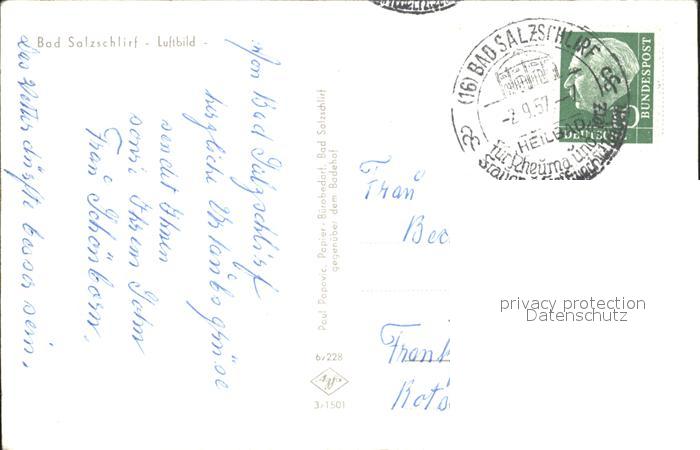 Bad Salzschlirf - Luftbild -
Von Bad Salzschlirf
herzliche Urlaubsgrüße
sendet Ihnen
sowie Ihrem Sohn
Frau Schönborn.
Das Wetter dürfte besser sein.
Paul Popovic, Papier-Bürobedarf, Bad Salzschlirf
gegenüber dem Badehof
6v228
3r1501
(16) BAD SALZSCHLIRF
-2.9.57-
HEILBAD
für Rheuma und
BUNDESPOST
DEUTSCHE
Frau
Bec
Frank
Rots
privacy protection
Datenschutz